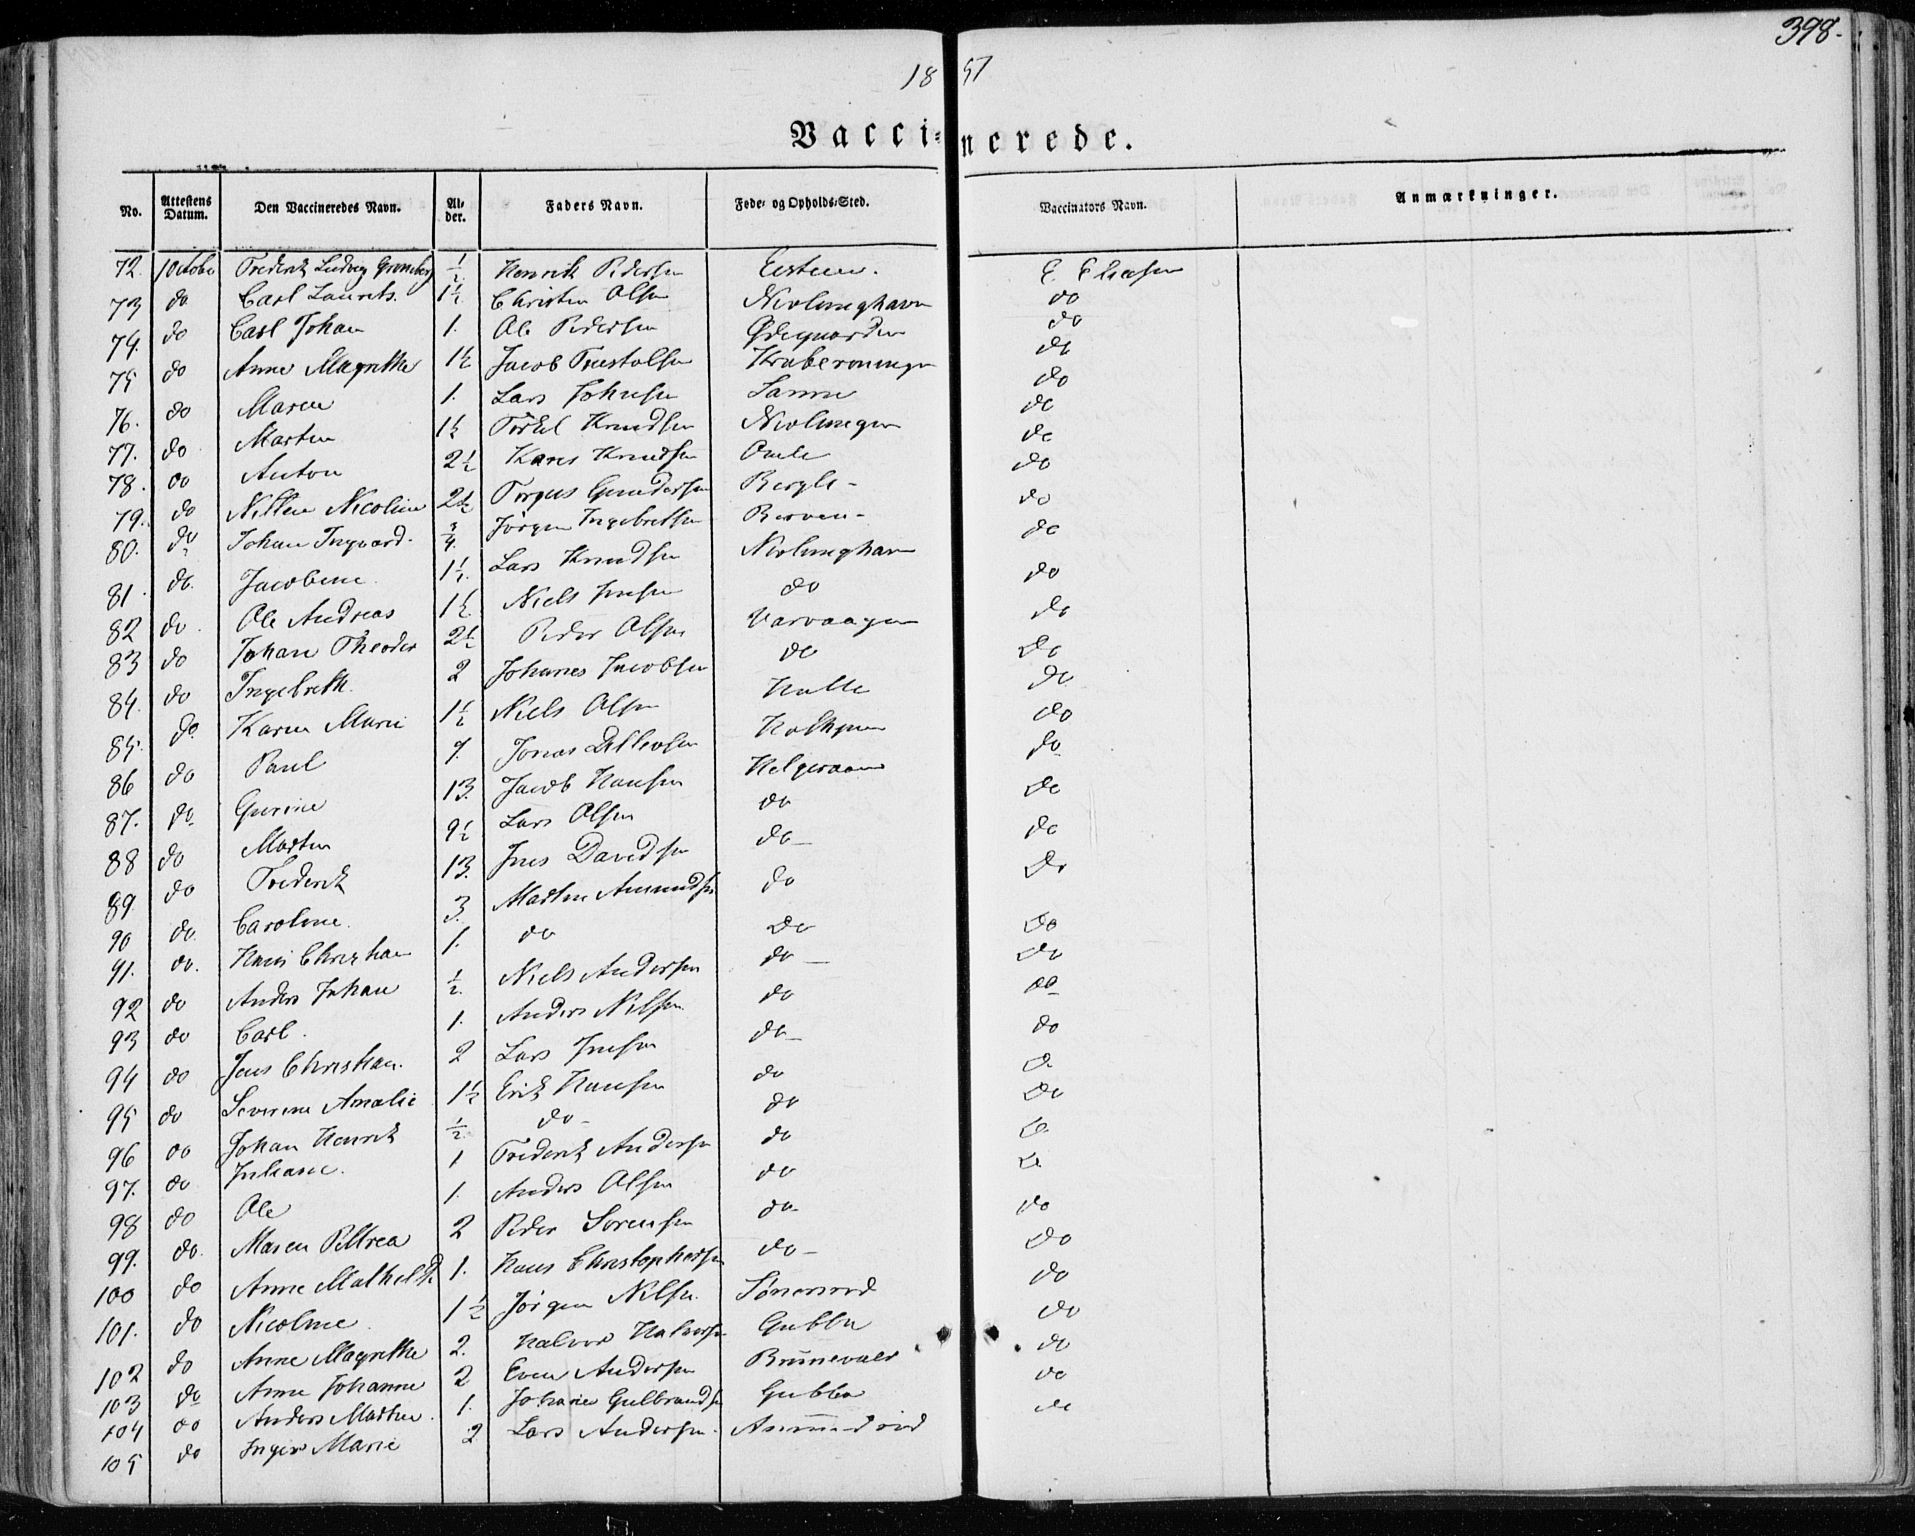 398.
1851
Vaccinerede.
No. Attestens Datum. Den Vaccineredes Navn. Alder. Faders Navn. Føde- og Opholds-Sted. Vaccinators Navn. Anmærkninger.
72. 1 Octobr Frederik Ludvig ½ Henrik Pedersen E. Eliesen
73 do Carl Laurits. 1½ Christen Olsen Nevlunghavn do
74. do Carl Johan 1. Ole Pedersen Ødegaarden do
75 do Anne Magrethe 1½ Jacob do
76. do Maren 1. Lars Johnsen Samme do
77. do Marten 1½ Torkel Knudsen Nevlungen do
78. do Anton 2½ Hans Knudsen Omle do
79. do Nicoline 2½ Torgus Gundersen Bergle - do
80. do Johan Ingvard. ¾ Jørgen Ingebretsen Berven - do
81. do. Jacobine. 1½. Lars Knudsen Nevlunghavn do
82 do. Ole Andreas 1½. Niels Jensen do do
83 do Johan Theodor 2½ Peder Olsen Varvaagen do
84. do Ingebreth. 2 Johanes Jacobsen do do
85. do. Karen Marie 1½ Niels Olsen Halle do
86 do Paul 7. Jonas Ditlevsen do
87. do Gurine 13. Jacob Hansen Helgeraaen do
88 do Marten 9½ Lars Olsen do do
89. do Frederik 13. Jens Davidsen do do
90 do. Caroline. 3. Marten Amundsen do do
91. do. Hans Christian 1. do do do
92 do Anders Johan ½. Niels Andersen do do
93 do Carl. 1. Anders Nilsen. do do
94 do Jens Christian. 2 Lars Jensen do do
95 do Severine Amalie 1½ Erik Hansen do do
96 do Johan Henrik ½. do do do
97. do Juliane. 1 Frederik Andersen do do
98 do Ole 1. Anders Olsen do do
99. do. Maren Petrea 2 Peder Sørensen do do
100 do Anne Mathilde 1. Hans Christophersen do do
101. do Nicoline. 1½ Jørgen Nilsen. do
102 do Anne Magrethe 2. Halvor Halvorsen Gubba do
103 do Anne Johanne 2 Even Andersen do
104 do Anders Marten. 1. Johanes Gulbrandsen Gubba do
105 do Inger Marie 2 Lars Andersen. Amundrød do